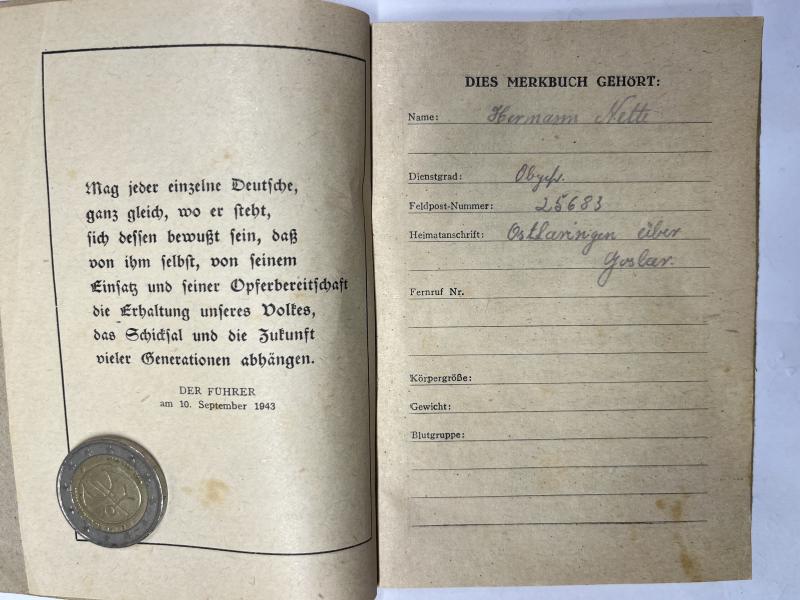 Mag jeder einzelne Deutsche,
ganz gleich, wo er steht,
sich dessen bewußt sein, daß
von ihm selbst, von seinem
Einsatz und seiner Opferbereitschaft
die Erhaltung unseres Volkes,
das Schicksal und die Zukunft
vieler Generationen abhängen.
DER FÜHRER
am 10. September 1943
DIES MERKBUCH GEHÖRT:
Name: Hermann Nette
Dienstgrad: Obgefr.
Feldpost-Nummer: 25683
Heimatanschrift: Ostharingen über
Goslar.
Fernruf Nr.
Körpergröße:
Gewicht:
Blutgruppe: